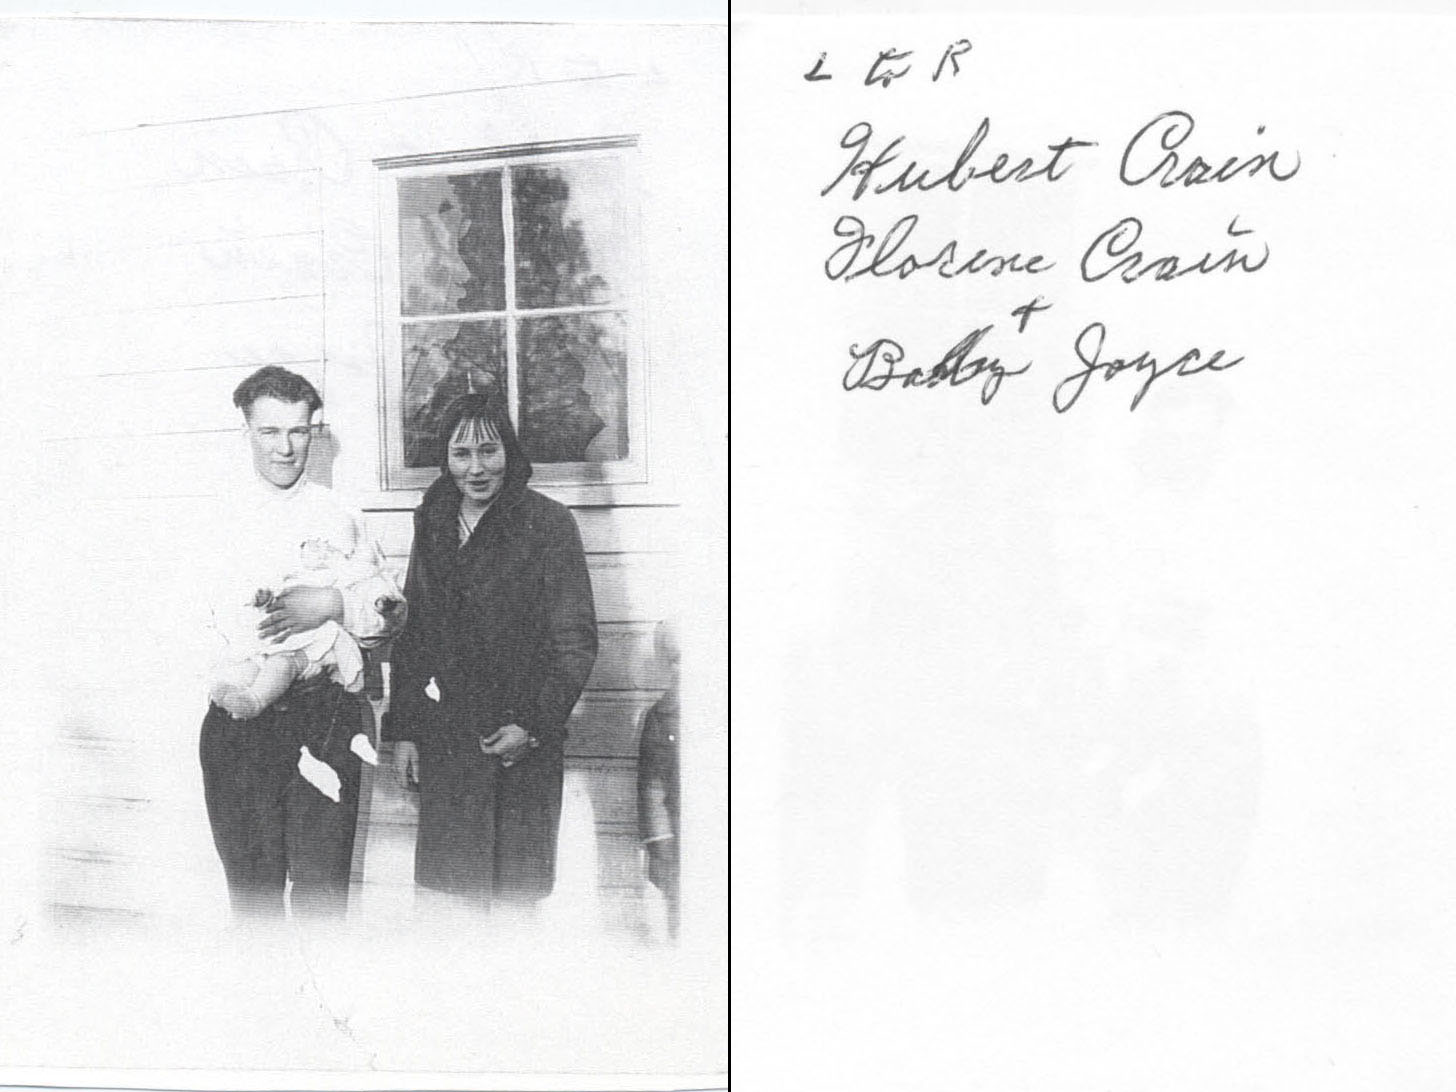 L to R
Hubert Crain
Florene Crain
+
Baby Joyce